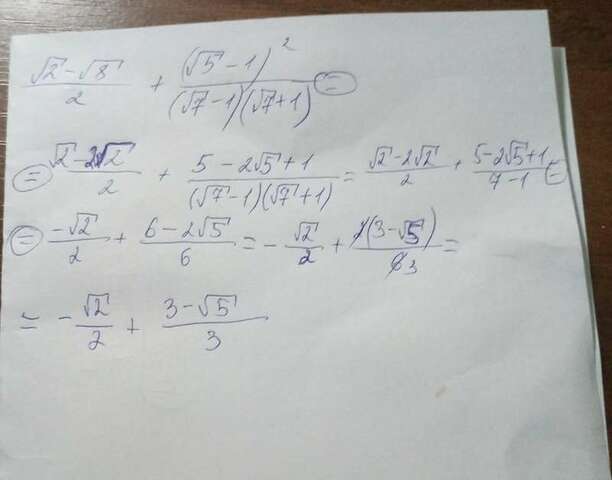 (√2 - √8)/2 + (√5 - 1)²/((√7 - 1)(√7 + 1)) =
= (√2 - 2√2)/2 + (5 - 2√5 + 1)/((√7 - 1)(√7 + 1)) = (√2 - 2√2)/2 + (5 - 2√5 + 1)/(7 - 1) =
= (-√2)/2 + (6 - 2√5)/6 = - √2/2 + 2(3 - √5)/6 3 =
= - √2/2 + (3 - √5)/3